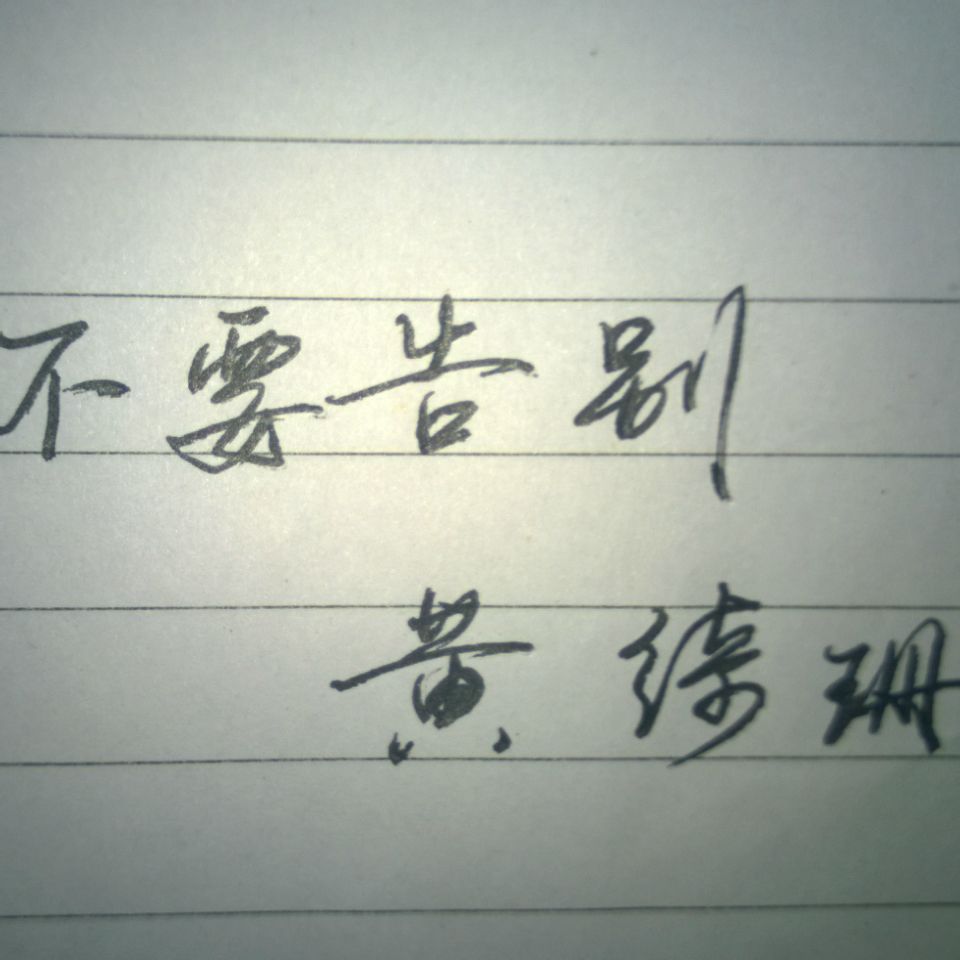 不要告别
黄绮珊